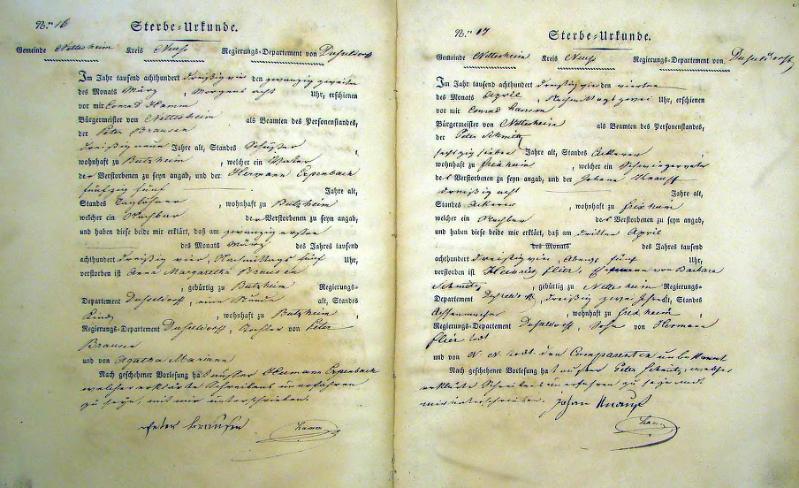 N.º 16
Sterbe-Urkunde.
Gemeinde Nettesheim Kreis Neuss Regierungs-Departement von Dusseldorf
Im Jahr tausend achthundert dreißig vier den zwanzig zweiten
des Monats März, Morgens acht Uhr, erschienen
vor mir Conrad Hamm
Bürgermeister von Nettesheim als Beamten des Personenstandes,
der Peter Brausen
dreißig neun Jahre alt, Standes
wohnhaft zu Butzheim, welcher ein Vater
der Verstorbenen zu seyn angab, und der Hermann Espenbach
fünfzig fünf Jahre alt,
Standes Taglöhner, wohnhaft zu Butzheim
welcher ein Nachbar der Verstorbenen zu seyn angab,
und haben diese beide mir erklärt, daß am zwanzig ersten
des Monats März des Jahres tausend
achthundert dreißig vier, Nachmittags fünf Uhr,
verstorben ist Anna Margaretha Brausen
, gebürtig zu Butzheim Regierungs-
Departement Dusseldorf, eine Stunde alt, Standes
Kind, wohnhaft zu Butzheim,
Regierungs-Departement Dusseldorff, Tochter von Peter
Brausen
und von Agatha
Nach geschehener Vorlesung hat Hermann Espenbach
welcher erklärte Schreibens unerfahren
zu seyn, mit mir unterschrieben.
Peter Brausen
Hamm
N.º 17
Sterbe-Urkunde.
Gemeinde Nettesheim Kreis Neuss Regierungs-Departement von Dusseldorff
Im Jahr tausend achthundert dreißig vier den vierten
des Monats April, Nachmittags zwei Uhr, erschienen
vor mir Conrad Hamm
Bürgermeister von Nettesheim als Beamten des Personenstandes,
der Peter Schmitz
sechzig sieben Jahre alt, Standes Ackerer
wohnhaft zu, welcher ein Schwiegervater
des Verstorbenen zu seyn angab, und der Johann Knauff
dreißig acht Jahre alt,
Standes Ackerer, wohnhaft zu
welcher ein Nachbar des Verstorbenen zu seyn angab,
und haben diese beide mir erklärt, daß am dritten April
des Monats des Jahres tausend
achthundert dreißig vier, Abends fünf Uhr,
verstorben ist Heinrich Flier, Ehemann von Barbara
Schmitz, gebürtig zu Nettesheim Regierungs-
Departement Dusseldorff, dreißig zwei Jahr alt, Standes
, wohnhaft zu
Regierungs-Departement Dusseldorff, Sohn von Hermann
Flier
und von N. N. den Comparenten unbekannt
Nach geschehener Vorlesung hat Peter Schmitz, welcher
erklärte Schreibens unerfahren zu seyn
mir unterschrieben. Johan Knauf
Hamm